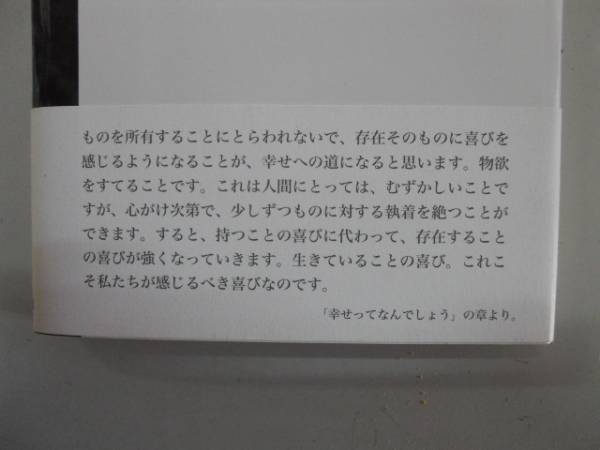 ものを所有することにとらわれないで、存在そのものに喜びを
感じるようになることが、幸せへの道になると思います。物欲
をすてることです。これは人間にとっては、むずかしいことで
すが、心がけ次第で、少しずつものに対する執着を絶つことが
できます。すると、持つことの喜びに代わって、存在すること
の喜びが強くなっていきます。生きていることの喜び。これこ
そ私たちが感じるべき喜びなのです。
「幸せってなんでしょう」の章より。